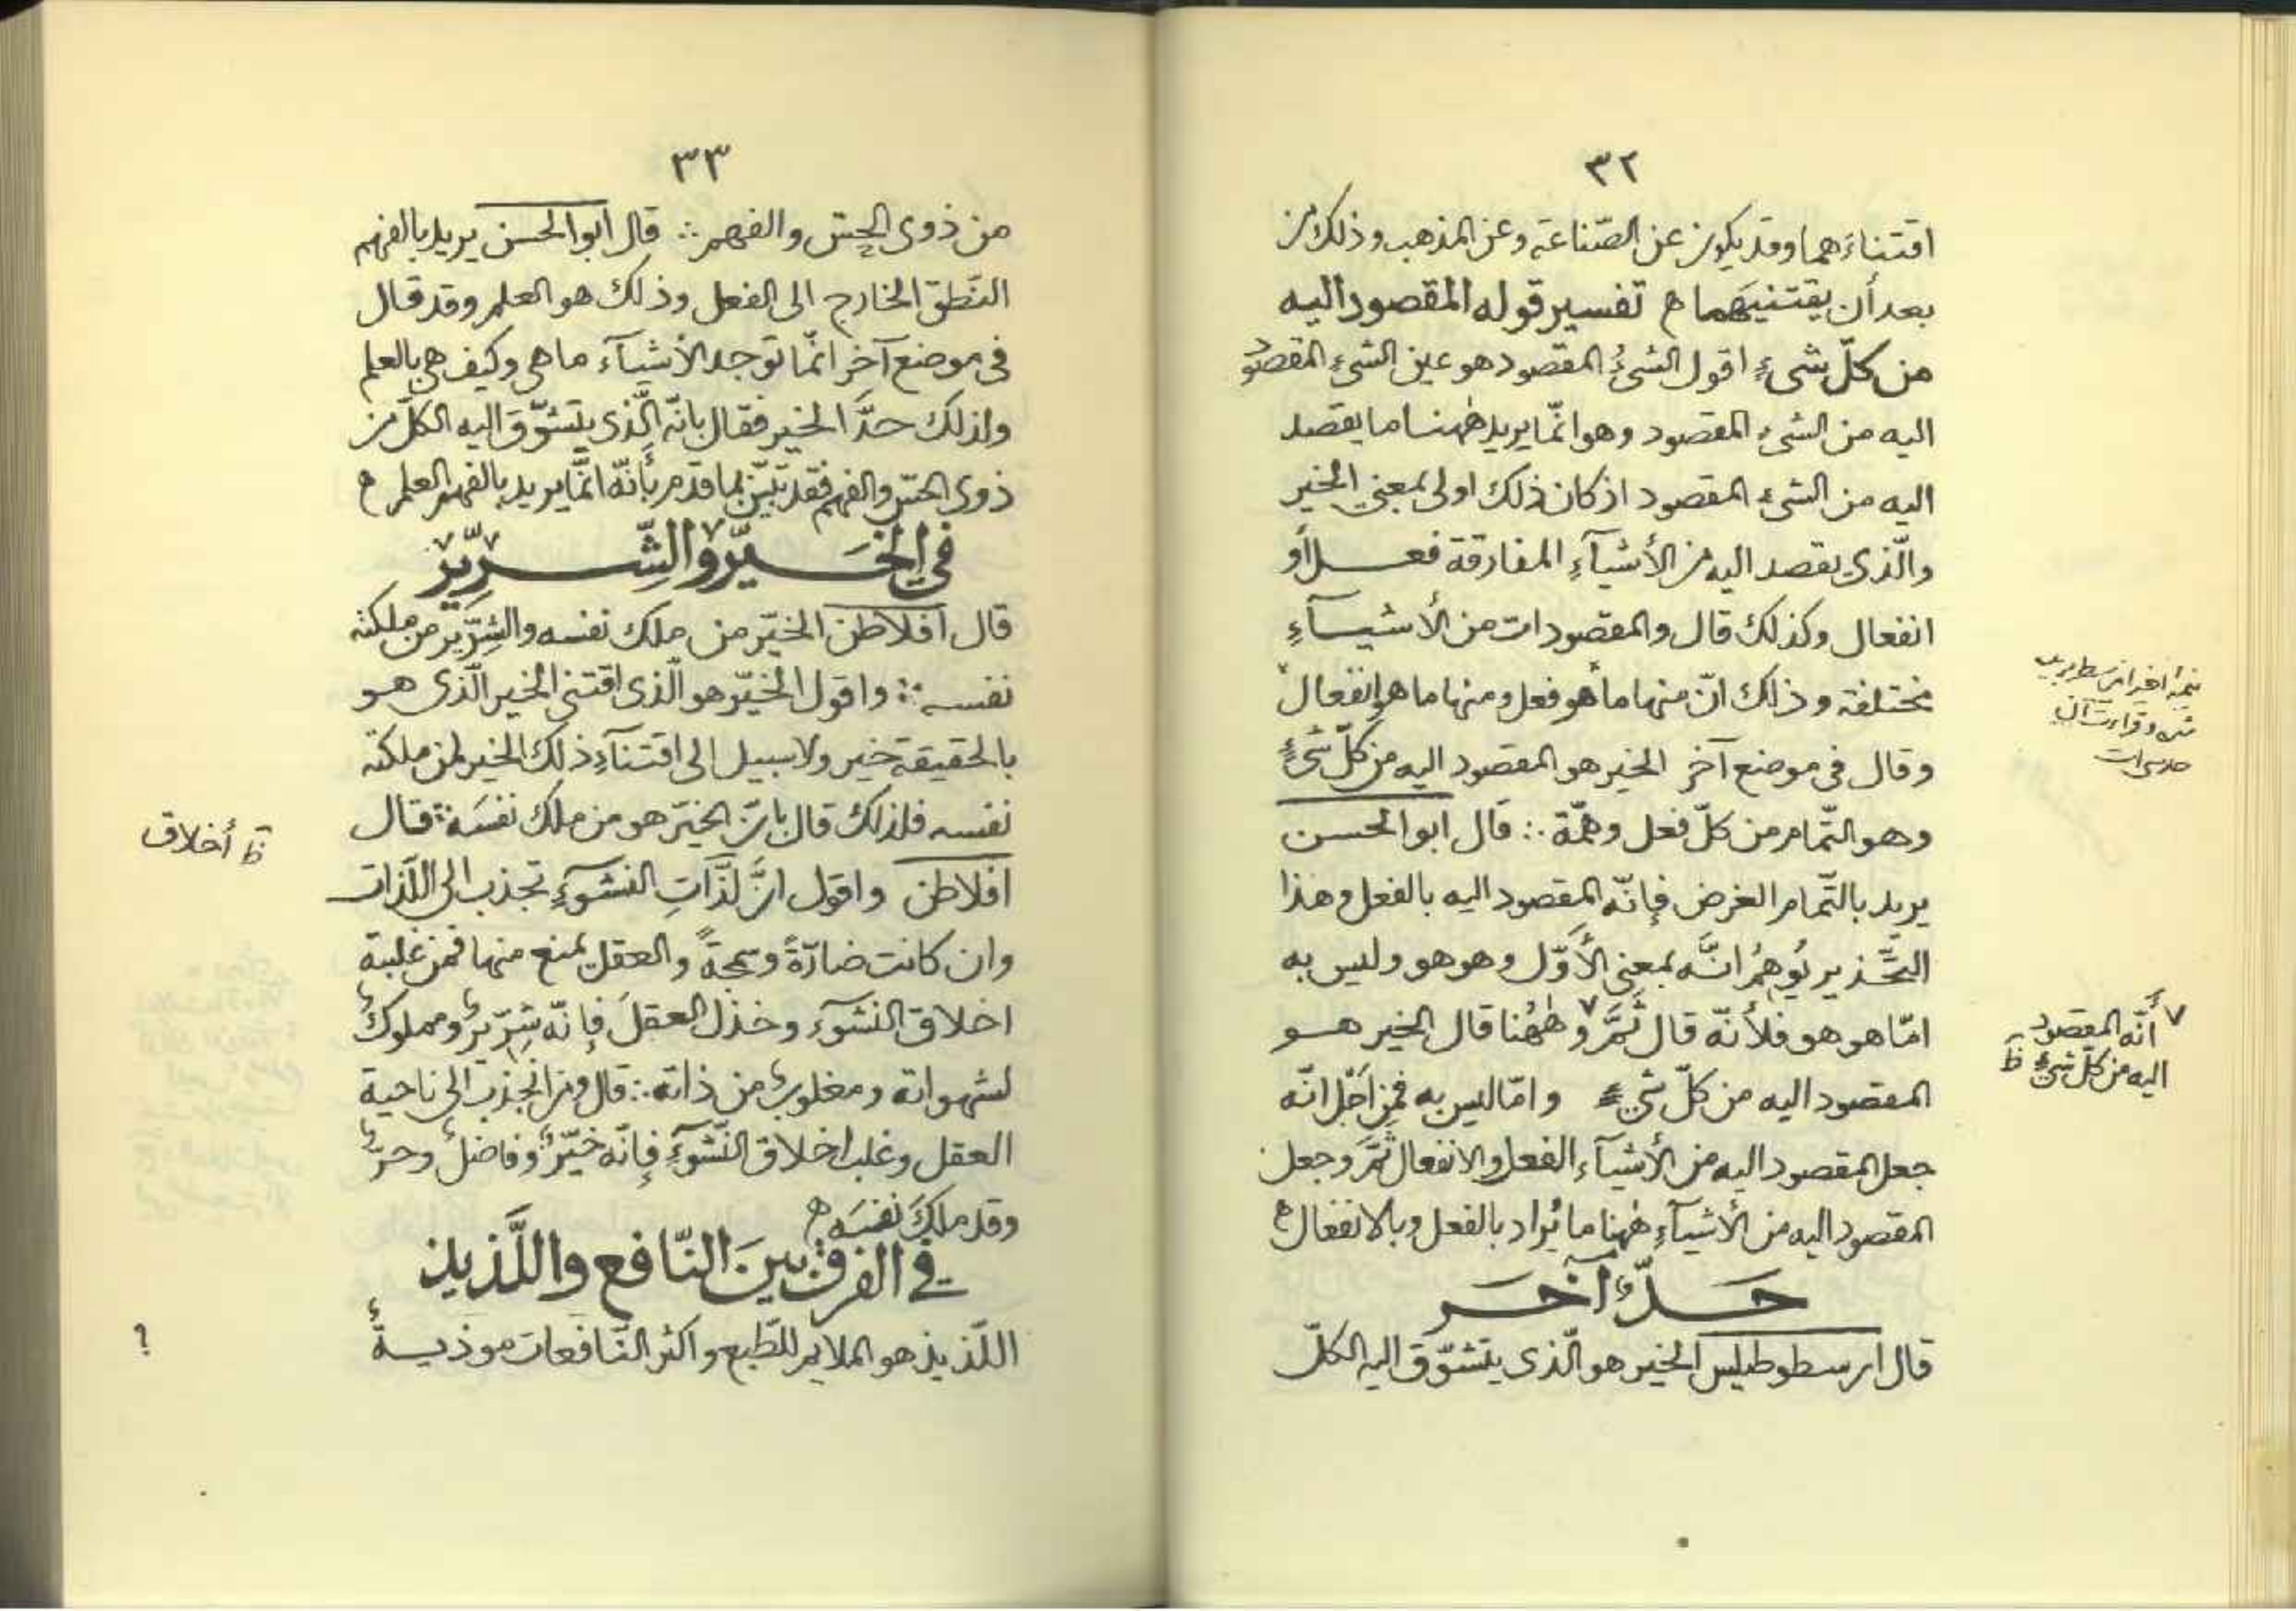 ٣٢
اقتناءهما وقد يكون عن الصّناعة وعن المذهب وذلك من
بعد أن يقتنيهما تفسير قوله المقصود اليه
من كلّ شىءٍ اقول الشىءُ المقصود هو عين الشىءِ المقصود
اليه من الشىء المقصود وهو انّما يريد هٰهنا ما يقصد
اليه من الشىء المقصود اذ كان ذلك اولى بمعنى الخير
والّذى يقصد اليه من الأشيآءِ المفارقة فعل أو
انفعال وكذلك قال والمقصودات من الأشيآءِ
مختلفة وذلك انّ منها ما هو فعل ومنها ما هو إنفعال
وقال فى موضع آخر الخير هو المقصود اليه من كلّ شىءٍ
وهو التّمام من كلّ فعل وهمّة ∴ قال ابو الحسن
يريد بالتّمام الغرض فإنّه المقصود اليه بالفعل وهذا
التّحذير يُوهِمُ انَّه بمعنى الأوّل وهو هو وليس به
امّا هو هو فلأنّه قال ثَمَّ ٧ وهٰهُنا قال الخير هو
المقصود اليه من كلّ شىءٍ وامّا ليس به فمن اَجْل انّه
جعل المقصود اليه من الأشيآء الفعل والانفعال ثَمَّ وجعل
المقصود اليه من الأشيآءِ هٰهنا ما يُراد بالفعل وبالانفعال
حَدٌّ آخَر
قال ارسطوطيلس الخير هو الّذى يتشوّق اليه الكلّ
٧ أنّه المقصود
اليه من كلّ شىءٍ ظ
٣٣
من ذوى الحِسّ والفهم ∴ قال ابو الحسن يريد بالفهم
النّطق الخارج الى الفعل وذلك هو العلم وقد قال
فى موضع آخر انّما توجد الأشيآء ما هى وكيف هى بالعلم
ولذلك حدَّ الخير فقال بانّه الّذى يتشوّق اليه الكلّ من
ذوى الحسّ والفهم فقد تبيّن بما قدم بأنّه انّما يريد بالفهم العلم
فى الخَيِّر والشِّرِّير
قال افلاطن الخيّر من ملك نفسه والشِرّير من ملكته
نفسه ∴ واقول الخيّر هو الّذى اقتنى الخير الّذى هو
بالحقيقة خير ولا سبيل الى اقتنآءِ ذلك الخير لمن ملكته
نفسه فلذلك قال بانّ الخيّر هو من ملك نفسَه ∴ قال
افلاطن واقول انَّ لذّاتِ النشوءِ تجذب الى اللّذات
وان كانت ضارّةً وسمجةً والعقل يمنع منها فمن غلبته
اخلاق النشوء وخذل العقلَ فإنّه شِرّيرٌ ومملوكٌ
لشهواته ومغلوبٌ من ذاته ∴ قال ومن انجذب الى ناحية
العقل وغلب اخلاق النّشوءِ فإنّه خيّرٌ وفاضلٌ وحرٌّ
وقد ملكَ نفسَه
فى الفرق بينَ النّافع واللَّذيذ
اللّذيذ هو الملايم للطّبع واكثر النّافعات موذيةٌ
ظ أخلاق
؟